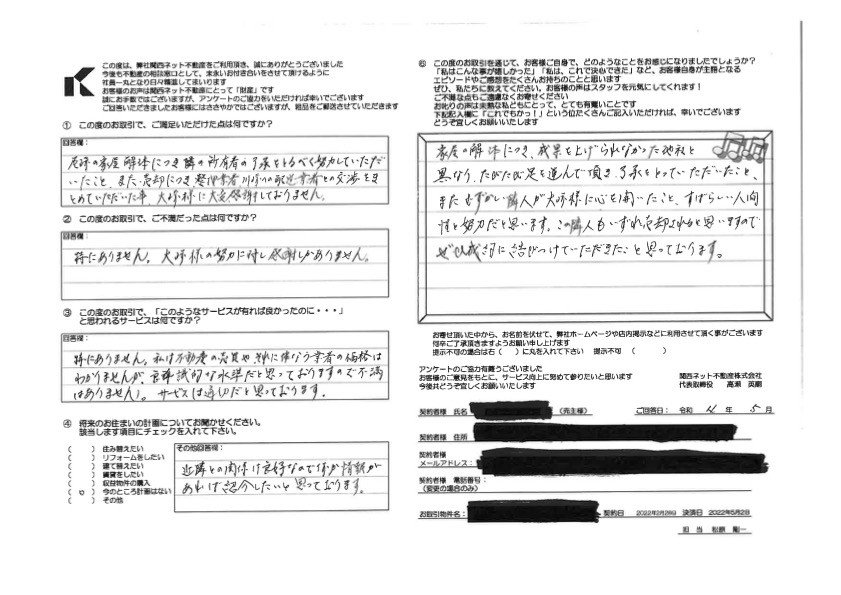 この度は、弊社関西ネット不動産をご利用頂き、誠にありがとうございました
今後も不動産の相談窓口として、末永いお付き合いをさせて頂けるように
社員一丸となり日々精進してまいります
お客様のお声は関西ネット不動産にとって「財産」です
誠にお手数ではございますが、アンケートのご協力をいただければ幸いでございます
ご回答いただきましたお客様にはささやかではございますが、粗品をご郵送させていただきます
① この度のお取引で、ご満足いただけた点は何ですか?
回答欄:
家屋解体につき隣の所有者の了承をとるべく努力していただ
いたこと、また、売却につき整理業者
との交渉をま
とめていただいた事、大師様に大変感謝しております。
② この度のお取引で、ご不満だった点は何ですか?
回答欄:
特にありません。大師様の努力に対し感謝しかありません。
③ この度のお取引で、「このようなサービスが有れば良かったのに・・・」
と思われるサービスは何ですか?
回答欄:
特にありません。私は不動産の売買や
に伴なう業者の価格は
わかりませんが、
な水準だと思っておりますので不満
はありません。サービスは適切だと思っております。
④ 将来のお住まいの計画についてお聞かせください。
該当します項目にチェックを入れて下さい。
( ) 住み替えたい
( ) リフォームをしたい
( ) 建て替えたい
( ) 賃貸をしたい
( ) 収益物件の購入
( ○ ) 今のところ計画はない
( ) その他
その他回答欄:
近隣との関係は良好なので何か情報が
あれば紹介したいと思っております。
⑥ この度のお取引を通じて、お客様ご自身で、どのようなことをお感じになりましたでしょうか?
「私はこんな事が嬉しかった」「私は、これで決心できた」など、お客様自身が主語となる
エピソードやご感想をたくさんお持ちのことと思います
ぜひ、私たちに教えてください。お客様の声はスタッフを元気にしてくれます!
ご不満な点もご遠慮なくお寄せください
お叱りの声は未熟な私どもにとって、とても有難いことです
下記記入欄に「これでもか!」という位たくさんご記入いただければ、幸いでございます
どうぞ宜しくお願いいたします
家屋の解体につき、成果を上げられなかった他社と
異なり、たびたび足を運んで頂き、了承をとっていただいたこと、
また、むずかしい隣人が大師様に心を開いたこと、すばらしい人間
性と努力だと思います。この隣人もいずれ売却されると思いますので
ぜひ成約に結びつけていただきたいと思っております。
お寄せ頂いた中から、お名前を伏せて、弊社ホームページや店内掲示などに利用させて頂く事がございます
何卒ご了承頂きますようお願い申し上げます
提示不可の場合は右( )に丸を入れて下さい 提示不可 ( )
アンケートのご協力有難うございました
お客様のご意見をもとに、サービス向上に努めて参りたいと思います
今後共どうぞ宜しくお願いいたします
関西ネット不動産株式会社
代表取締役 高瀬 英剛
契約者様 氏名 (売主様)
ご回答日: 令和 4 年 5 月
契約者様 住所
契約者様
メールアドレス:
契約者様 電話番号:
(変更の場合のみ)
お取引物件名:
契約日 2022年2月28日 決済日 2022年5月2日
担当 松原 剛一